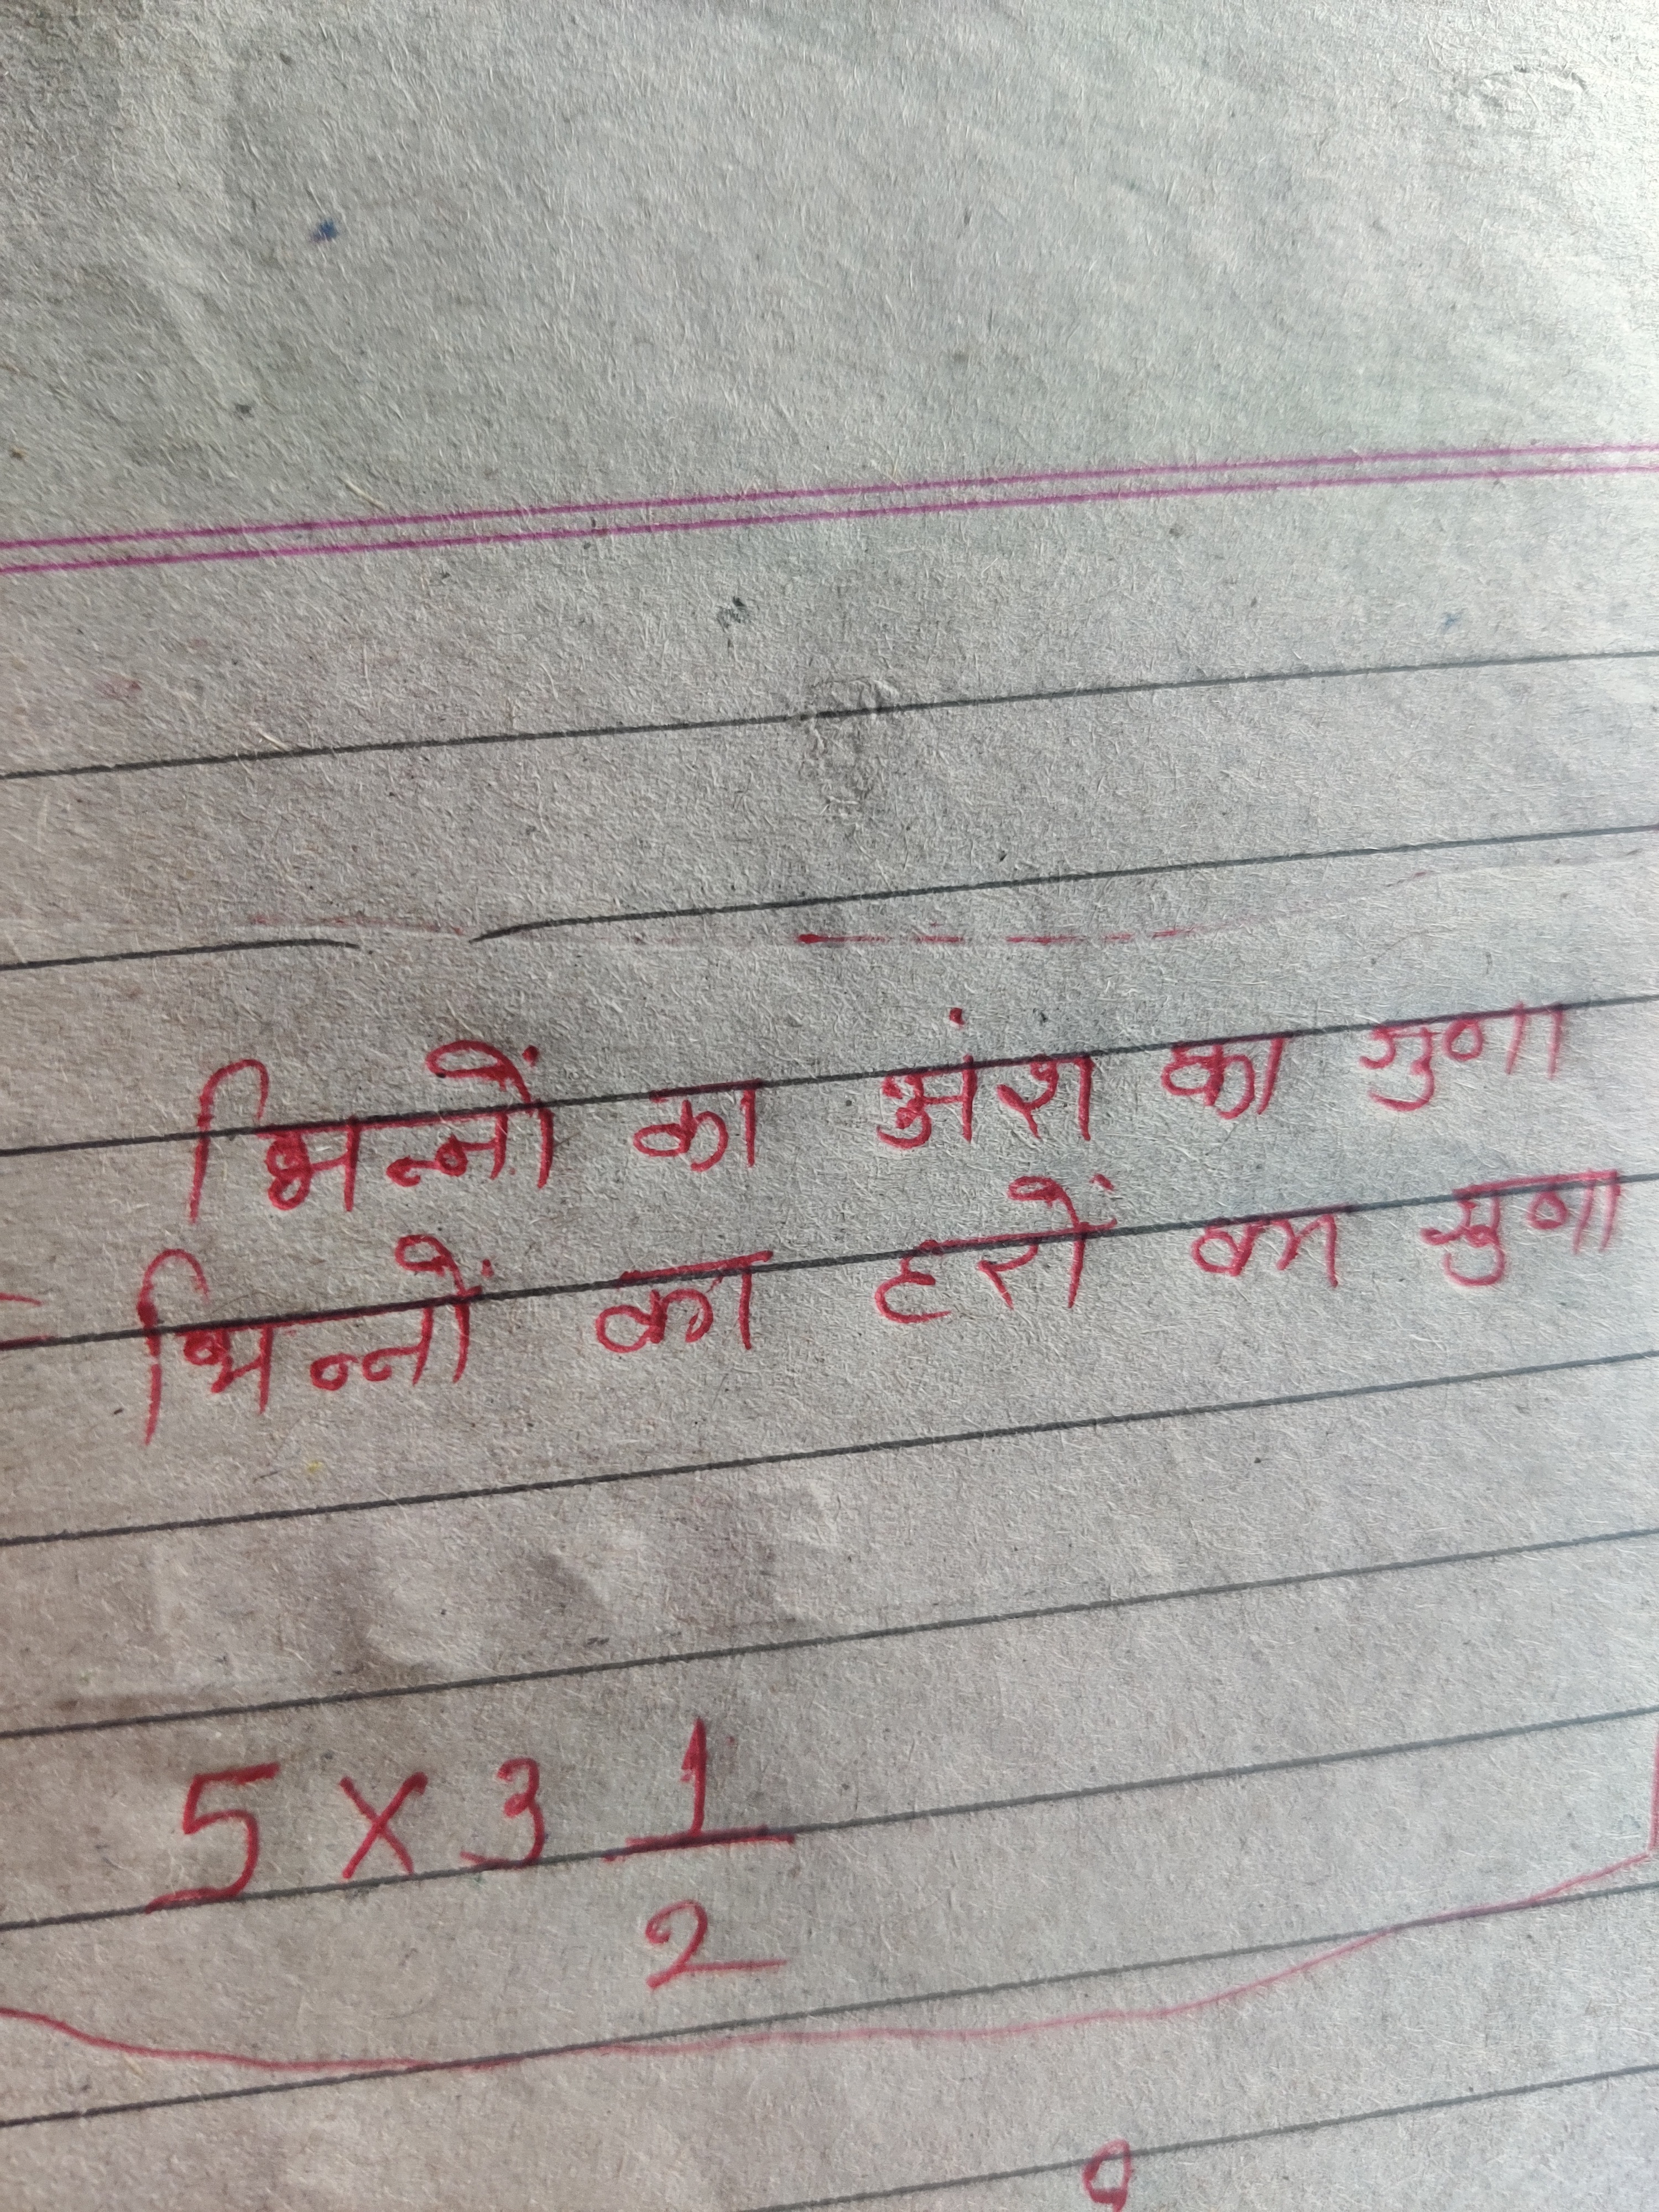 भिन्नों का अंश का गुणा
भिन्नों का हरों का गुणा
5 × 3 1/2